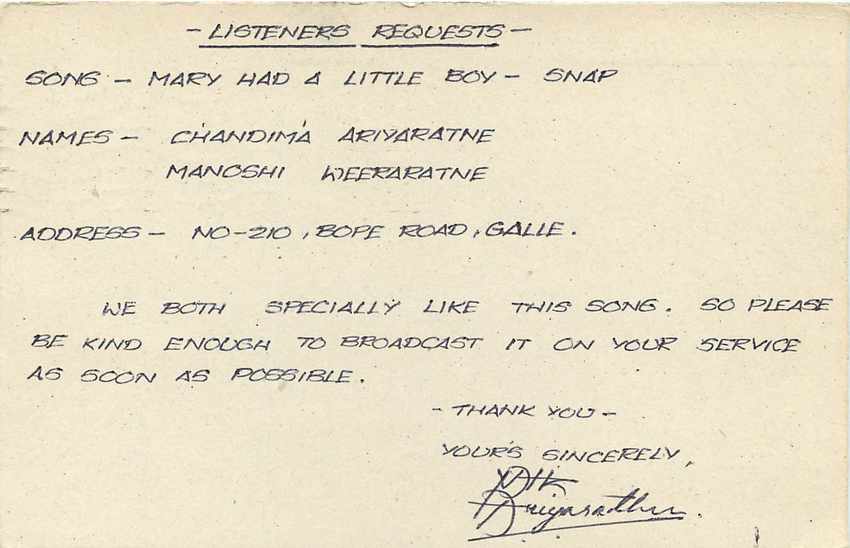 - LISTENERS REQUESTS -
SONG - MARY HAD A LITTLE BOY - SNAP
NAMES - CHANDIMA ARIYARATNE
MANOSHI WEERARATNE
ADDRESS - NO-210, BOPE ROAD, GALLE.
WE BOTH SPECIALLY LIKE THIS SONG. SO PLEASE
BE KIND ENOUGH TO BROADCAST IT ON YOUR SERVICE
AS SOON AS POSSIBLE.
- THANK YOU -
YOUR'S SINCERELY,